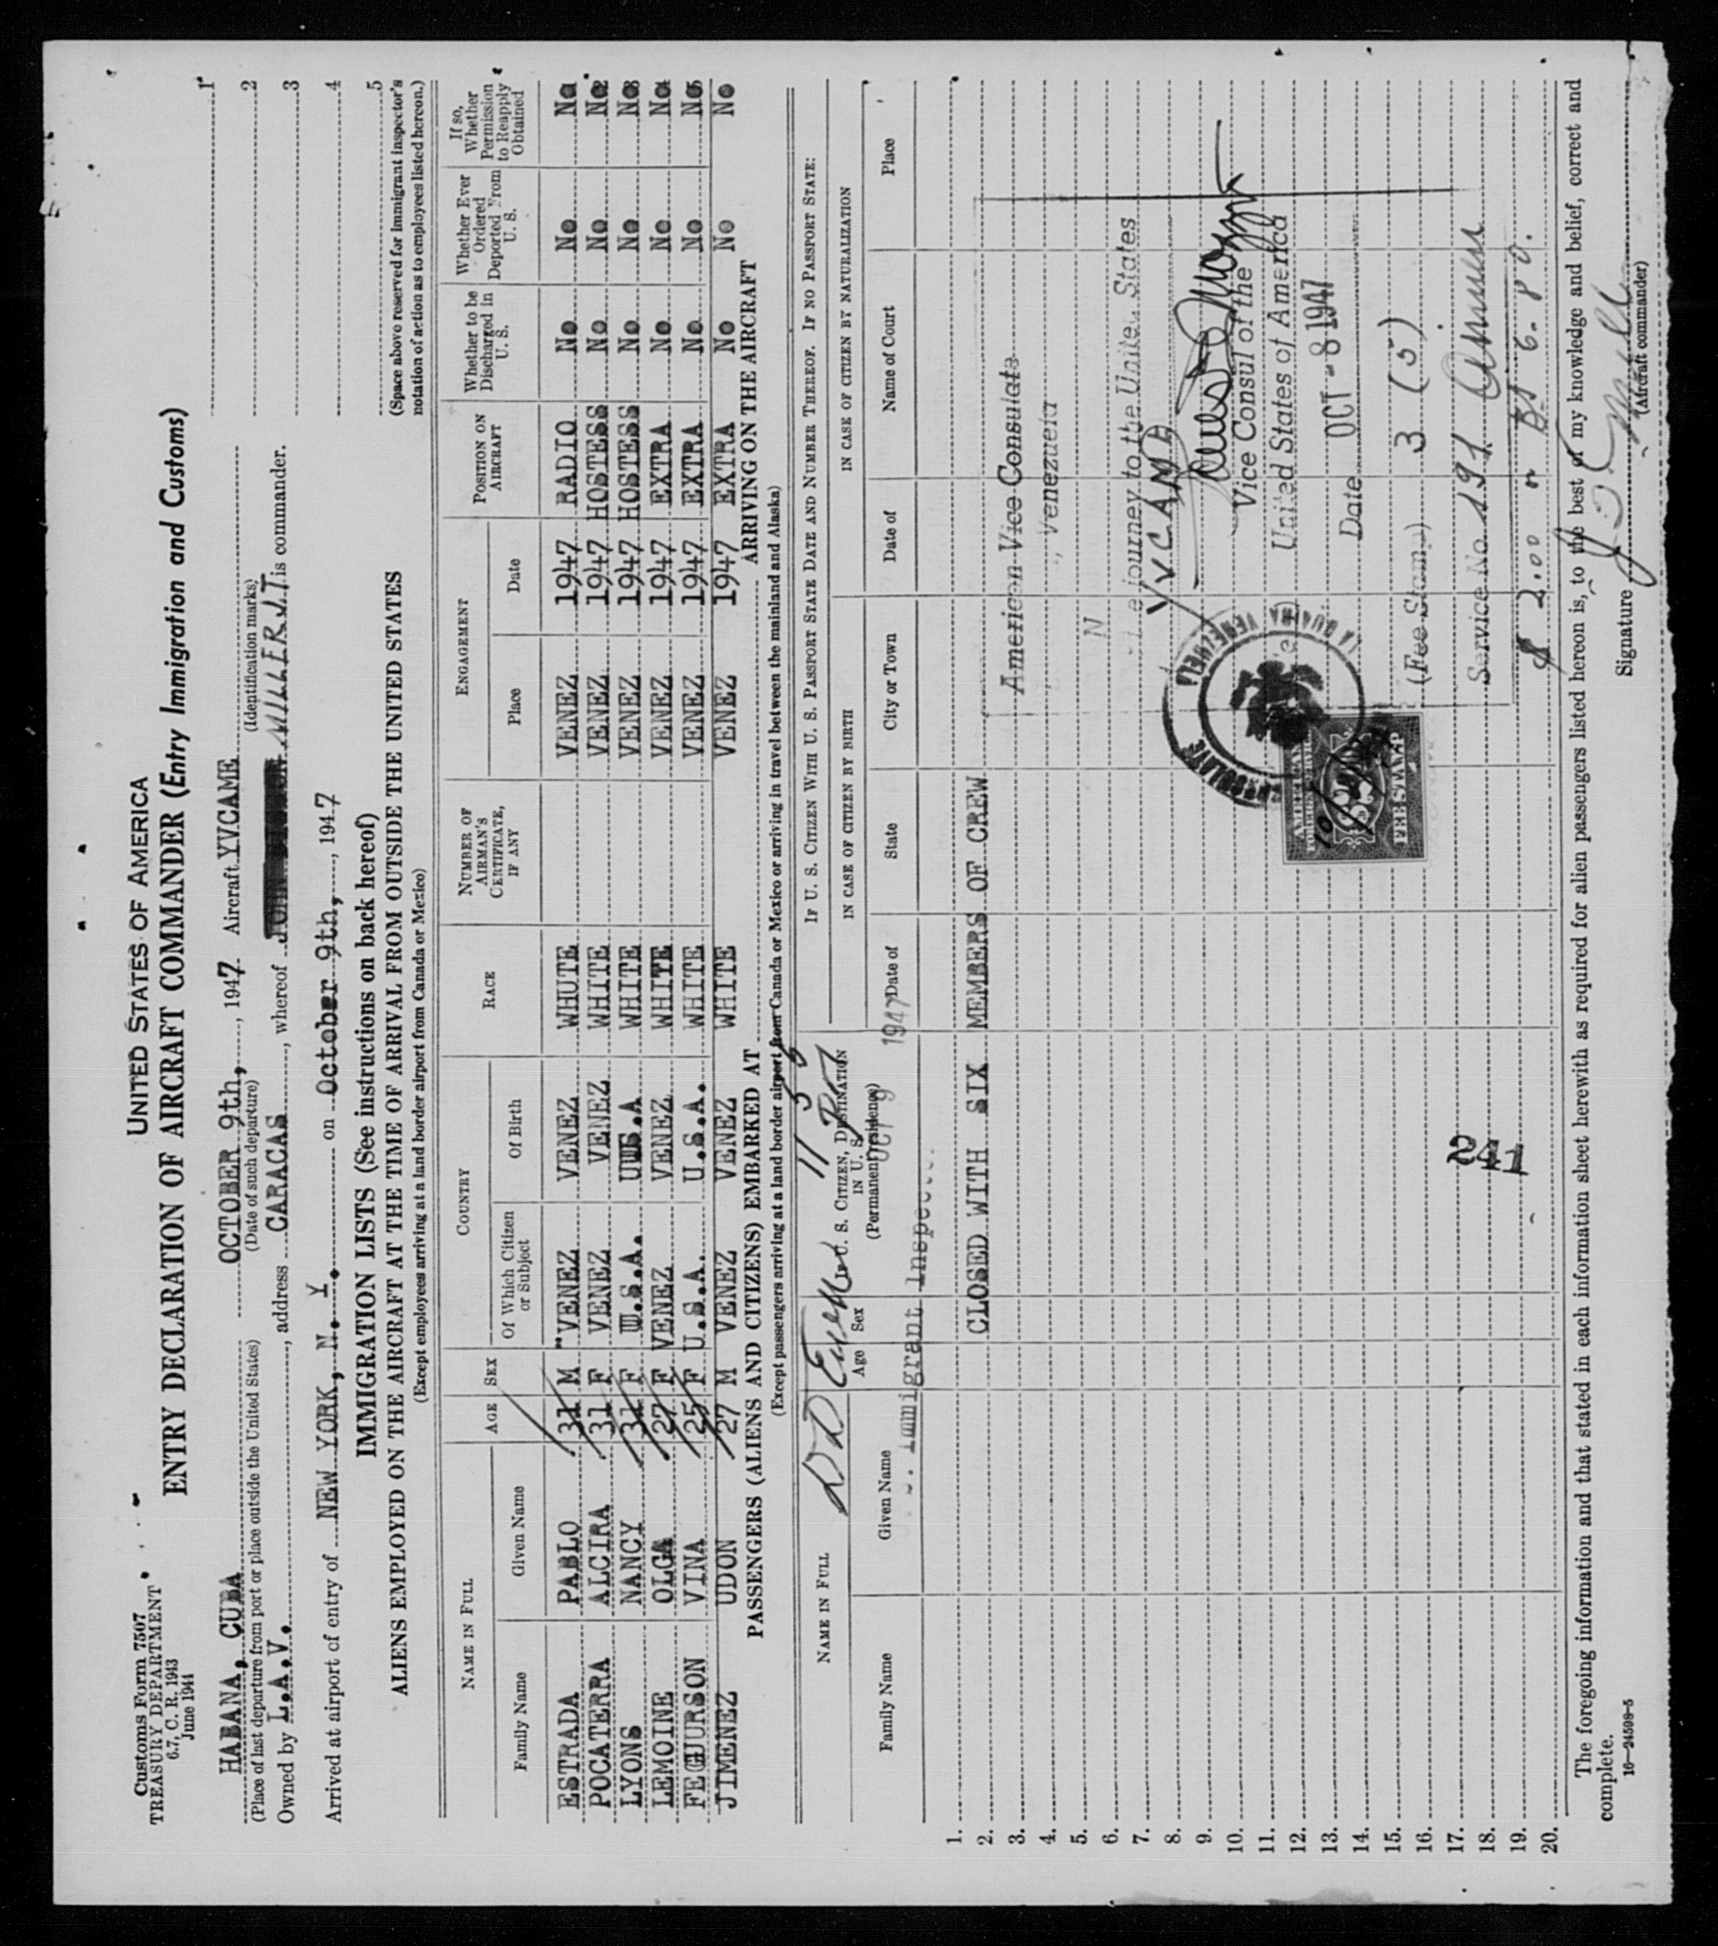 Customs Form 7507
TREASURY DEPARTMENT
6.7, C. R. 1943
June 1944
UNITED STATES OF AMERICA
ENTRY DECLARATION OF AIRCRAFT COMMANDER (Entry Immigration and Customs)
HABANA, CUBA OCTOBER 9th, , 1947 Aircraft YVCAME
(Place of last departure from port or place outside the United States) (Date of such departure) (Identification marks)
Owned by L.A.V. , address CARACAS , whereof MILLER J.T is commander.
Arrived at airport of entry of NEW YORK, N. Y. on October 9th, , 1947
1
2
3
4
5
(Space above reserved for immigrant inspector's notation of action as to employees listed hereon.)
IMMIGRATION LISTS (See instructions on back hereof)
ALIENS EMPLOYED ON THE AIRCRAFT AT THE TIME OF ARRIVAL FROM OUTSIDE THE UNITED STATES
(Except employees arriving at a land border airport from Canada or Mexico)
NAME IN FULL AGE SEX COUNTRY RACE NUMBER OF AIRMAN'S CERTIFICATE, IF ANY ENGAGEMENT POSITION ON AIRCRAFT Whether to be Discharged in U. S. Whether Ever Ordered Deported From U. S. If so, Whether Permission to Reapply Obtained
Family Name Given Name Of Which Citizen or Subject Of Birth Place Date
ESTRADA PABLO 31 M VENEZ VENEZ WHUTE VENEZ 1947 RADIO No No No
POCATERRA ALCIRA 31 F VENEZ VENEZ WHITE VENEZ 1947 HOSTESS No No No
LYONS NANCY 31 F U.S.A. U.S.A WHITE VENEZ 1947 HOSTESS No No No
LEMOINE OLGA 27 F VENEZ VENEZ WHITE VENEZ 1947 EXTRA No No No
FEGURSON VINA 25 F U.S.A. U.S.A. WHITE VENEZ 1947 EXTRA No No No
JIMENEZ UDON 27 M VENEZ VENEZ WHITE VENEZ 1947 EXTRA No No No
PASSENGERS (ALIENS AND CITIZENS) EMBARKED AT ARRIVING ON THE AIRCRAFT
(Except passengers arriving at a land border airport from Canada or Mexico or arriving in travel between the mainland and Alaska)
NAME IN FULL Age Sex U. S. CITIZEN, DESTINATION IN U. S. (Permanent residence) IF U. S. CITIZEN WITH U. S. PASSPORT STATE DATE AND NUMBER THEREOF. IF NO PASSPORT STATE:
IN CASE OF CITIZEN BY BIRTH IN CASE OF CITIZEN BY NATURALIZATION
Family Name Given Name Date of State City or Town Date of Name of Court Place
OCT 9 1947
Immigrant Inspector
1.
2. CLOSED WITH SIX MEMBERS OF CREW
3. American Vice Consulate
4. , Venezuela
5.
6. journey to the United States
7. YVCAME
8.
9. Vice Consul of the
10. United States of America
11.
12. OCT - 8 1947
13. Date
14.
15. (Fee Stamp) 3 (5)
16.
17. Service No. 191
18.
19. $ 2.00 Bs 6.80.
20.
CONSULATE LA GUAIRA VENEZUELA
AMERICAN
FEE STAMP
241
The foregoing information and that stated in each information sheet herewith as required for alien passengers listed hereon is, to the best of my knowledge and belief, correct and
complete.
Signature
(Aircraft commander)
16—24598-5